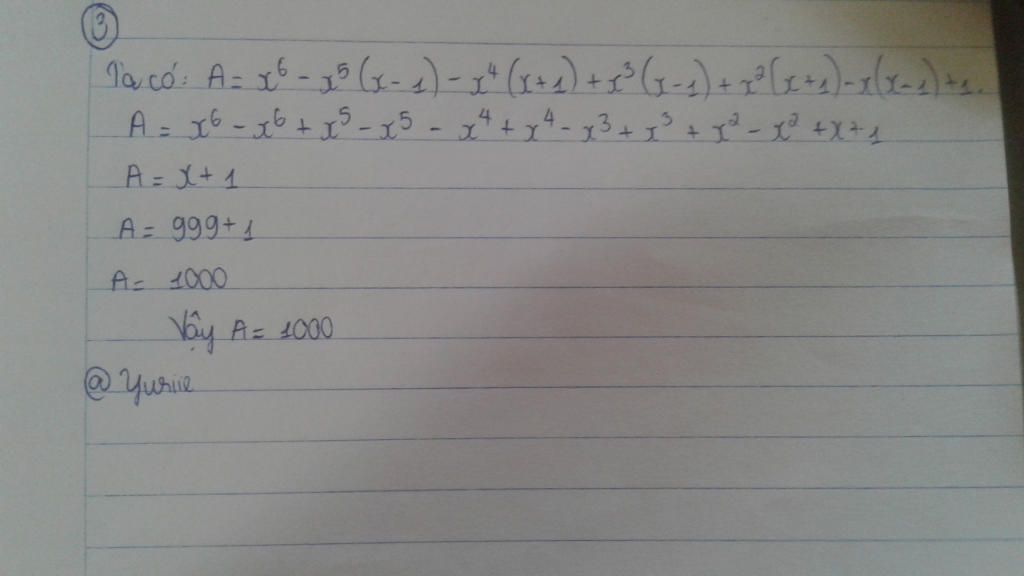 3
Ta có: A = x⁶ - x⁵(x-1) - x⁴(x+1) + x³(x-1) + x²(x+1) - x(x-1) + 1.
A = x⁶ - x⁶ + x⁵ - x⁵ - x⁴ + x⁴ - x³ + x³ + x² - x² + x + 1
A = x + 1
A = 999 + 1
A = 1000
Vậy A = 1000
@ Yuriie